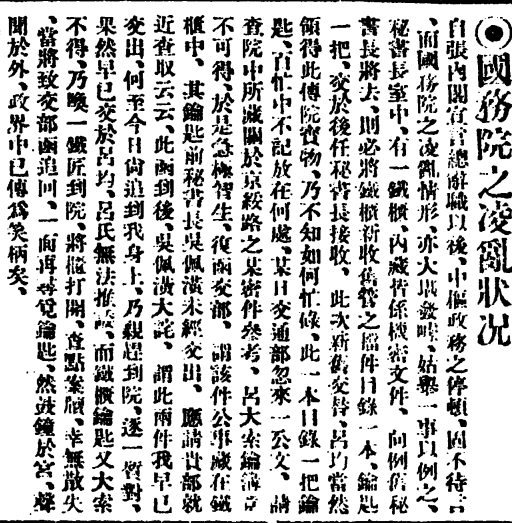 ◉國務院之凌亂狀况
自張內閣宣言總辭職以後、中樞政務之停頓、固不待言
、而國務院之凌亂情形、亦大堪發噱、姑舉一事以例之、
秘書長室中、有一鐵櫃、內藏皆係機密文件、向例舊秘
書長將去、則必將鐵櫃新收舊管之檔件目錄一本、鑰匙
一把、交於後任秘書長接收、此次新舊交替、呂均當然
領得此傳院寶物、乃不知如何忙碌、此一本目錄一把鑰
匙、百忙中不記放在何處、某日交通部忽來一公文、請
查院中所藏關於京綏路之某密件參考、呂大索鑰簿竟
不可得、於是急極智生、復函交部、謂該件公事藏在鐵
櫃中、其鑰匙前秘書長吳佩潢未經交出、應請貴部就
近查取云云、此函到後、吳佩潢大詫、謂此兩件我早已
交出、何至今日尚追到我身上、乃親趕到院、逐一質對、
果然早已交於呂均、呂氏無法推諉、而鐵櫃鑰匙又大索
不得、乃喚一鐵匠到院、將櫃打開、查點案牘、幸無散失
、當將致交部函追回、一面再尋覓鑰匙、然鼓鐘於宮、聲
聞於外、政界中已傳爲笑柄矣、